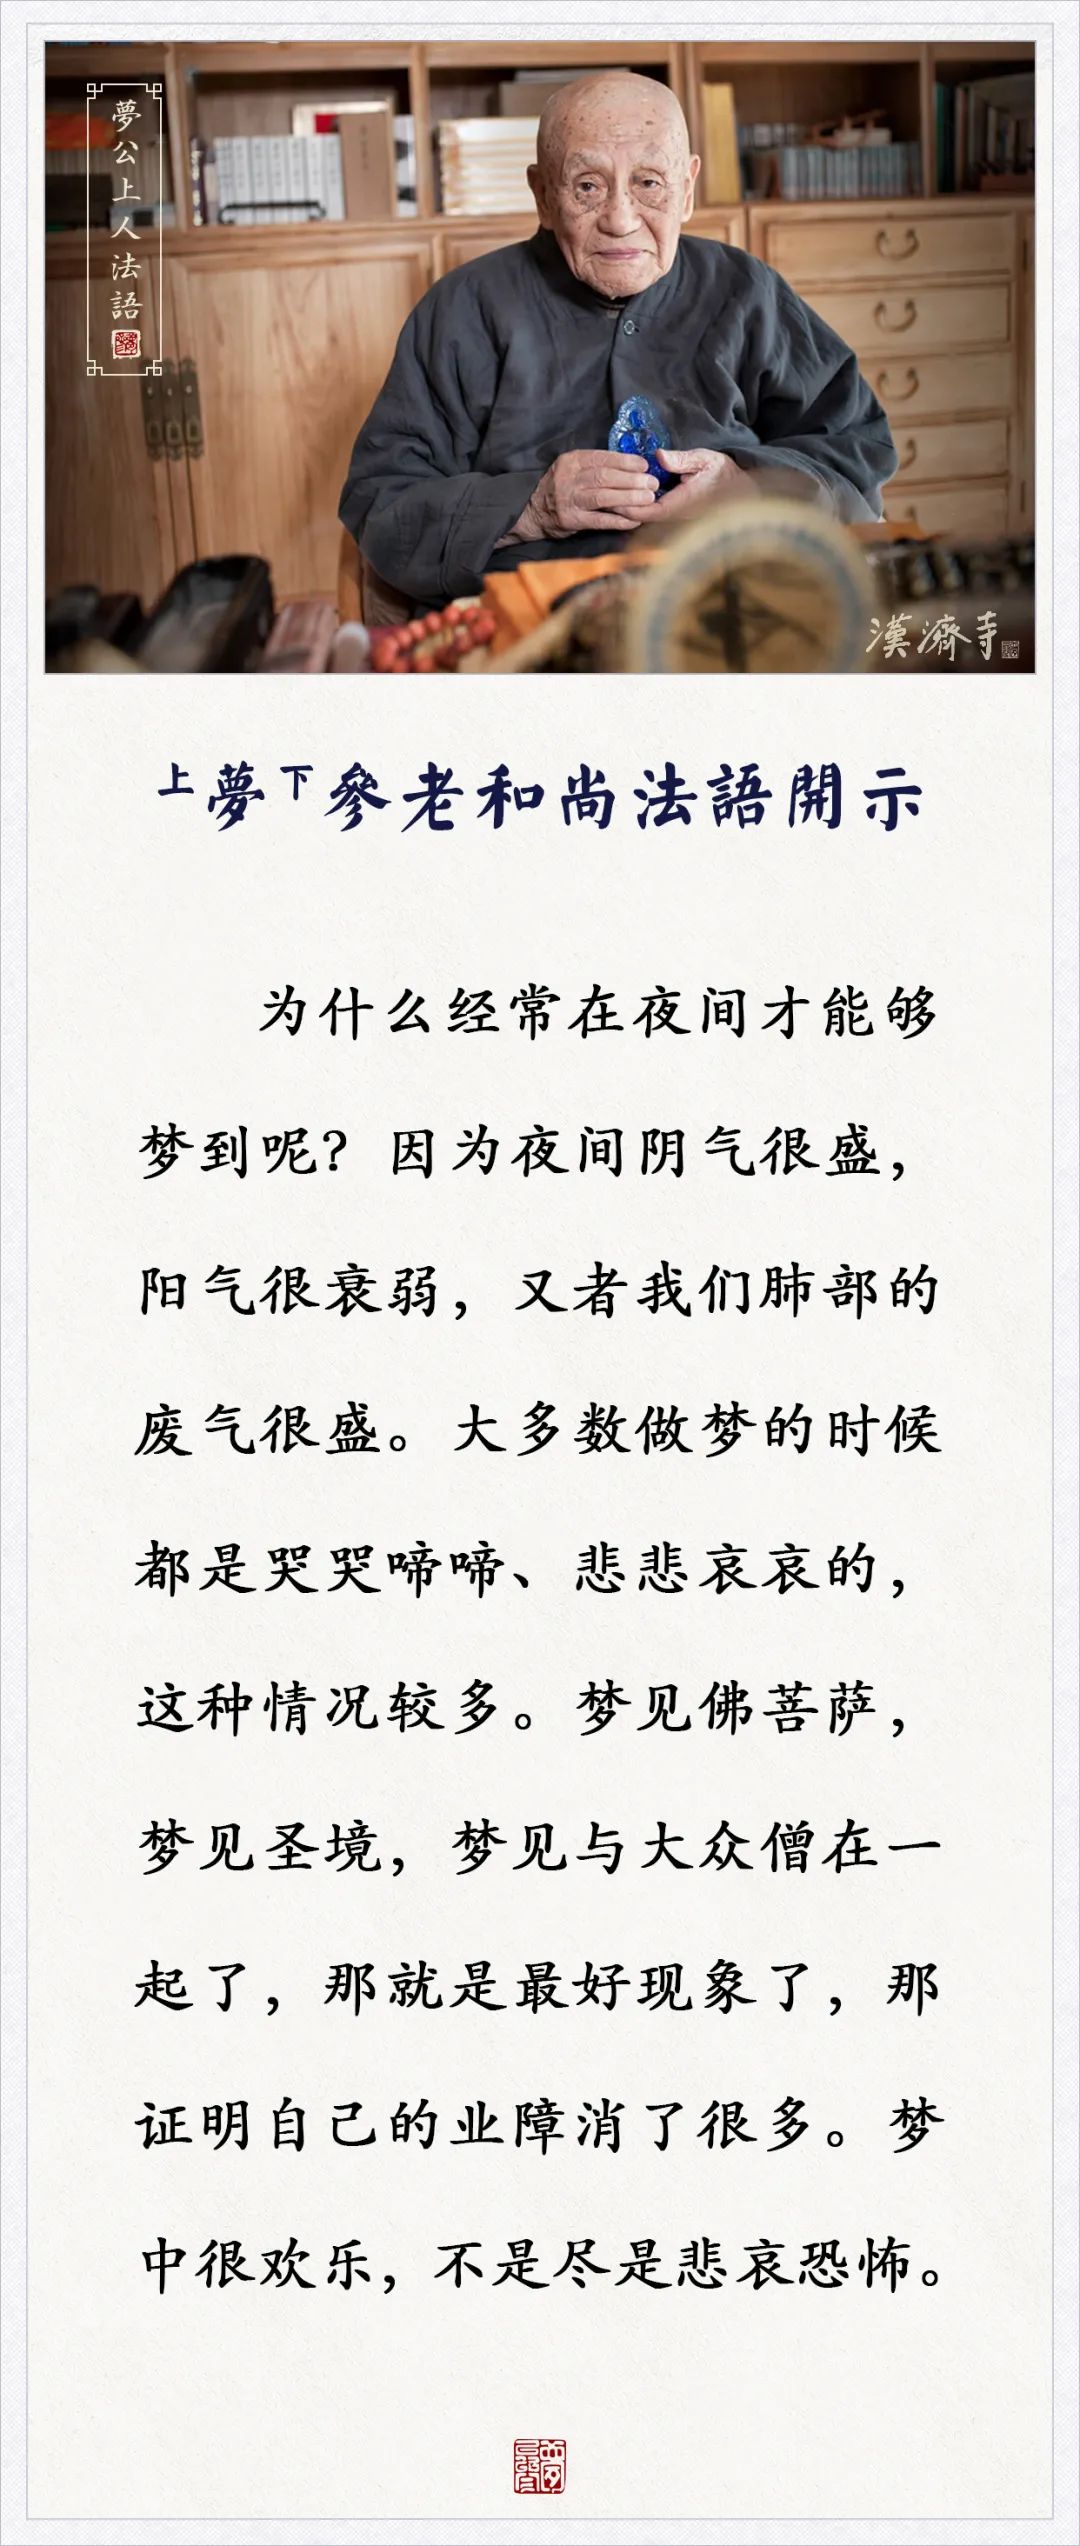 夢公上人法語
漢濟寺
上夢下參老和尚法語開示
为什么经常在夜间才能够
梦到呢？因为夜间阴气很盛，
阳气很衰弱，又者我们肺部的
废气很盛。大多数做梦的时候
都是哭哭啼啼、悲悲哀哀的，
这种情况较多。梦见佛菩萨，
梦见圣境，梦见与大众僧在一
起了，那就是最好现象了，那
证明自己的业障消了很多。梦
中很欢乐，不是尽是悲哀恐怖。